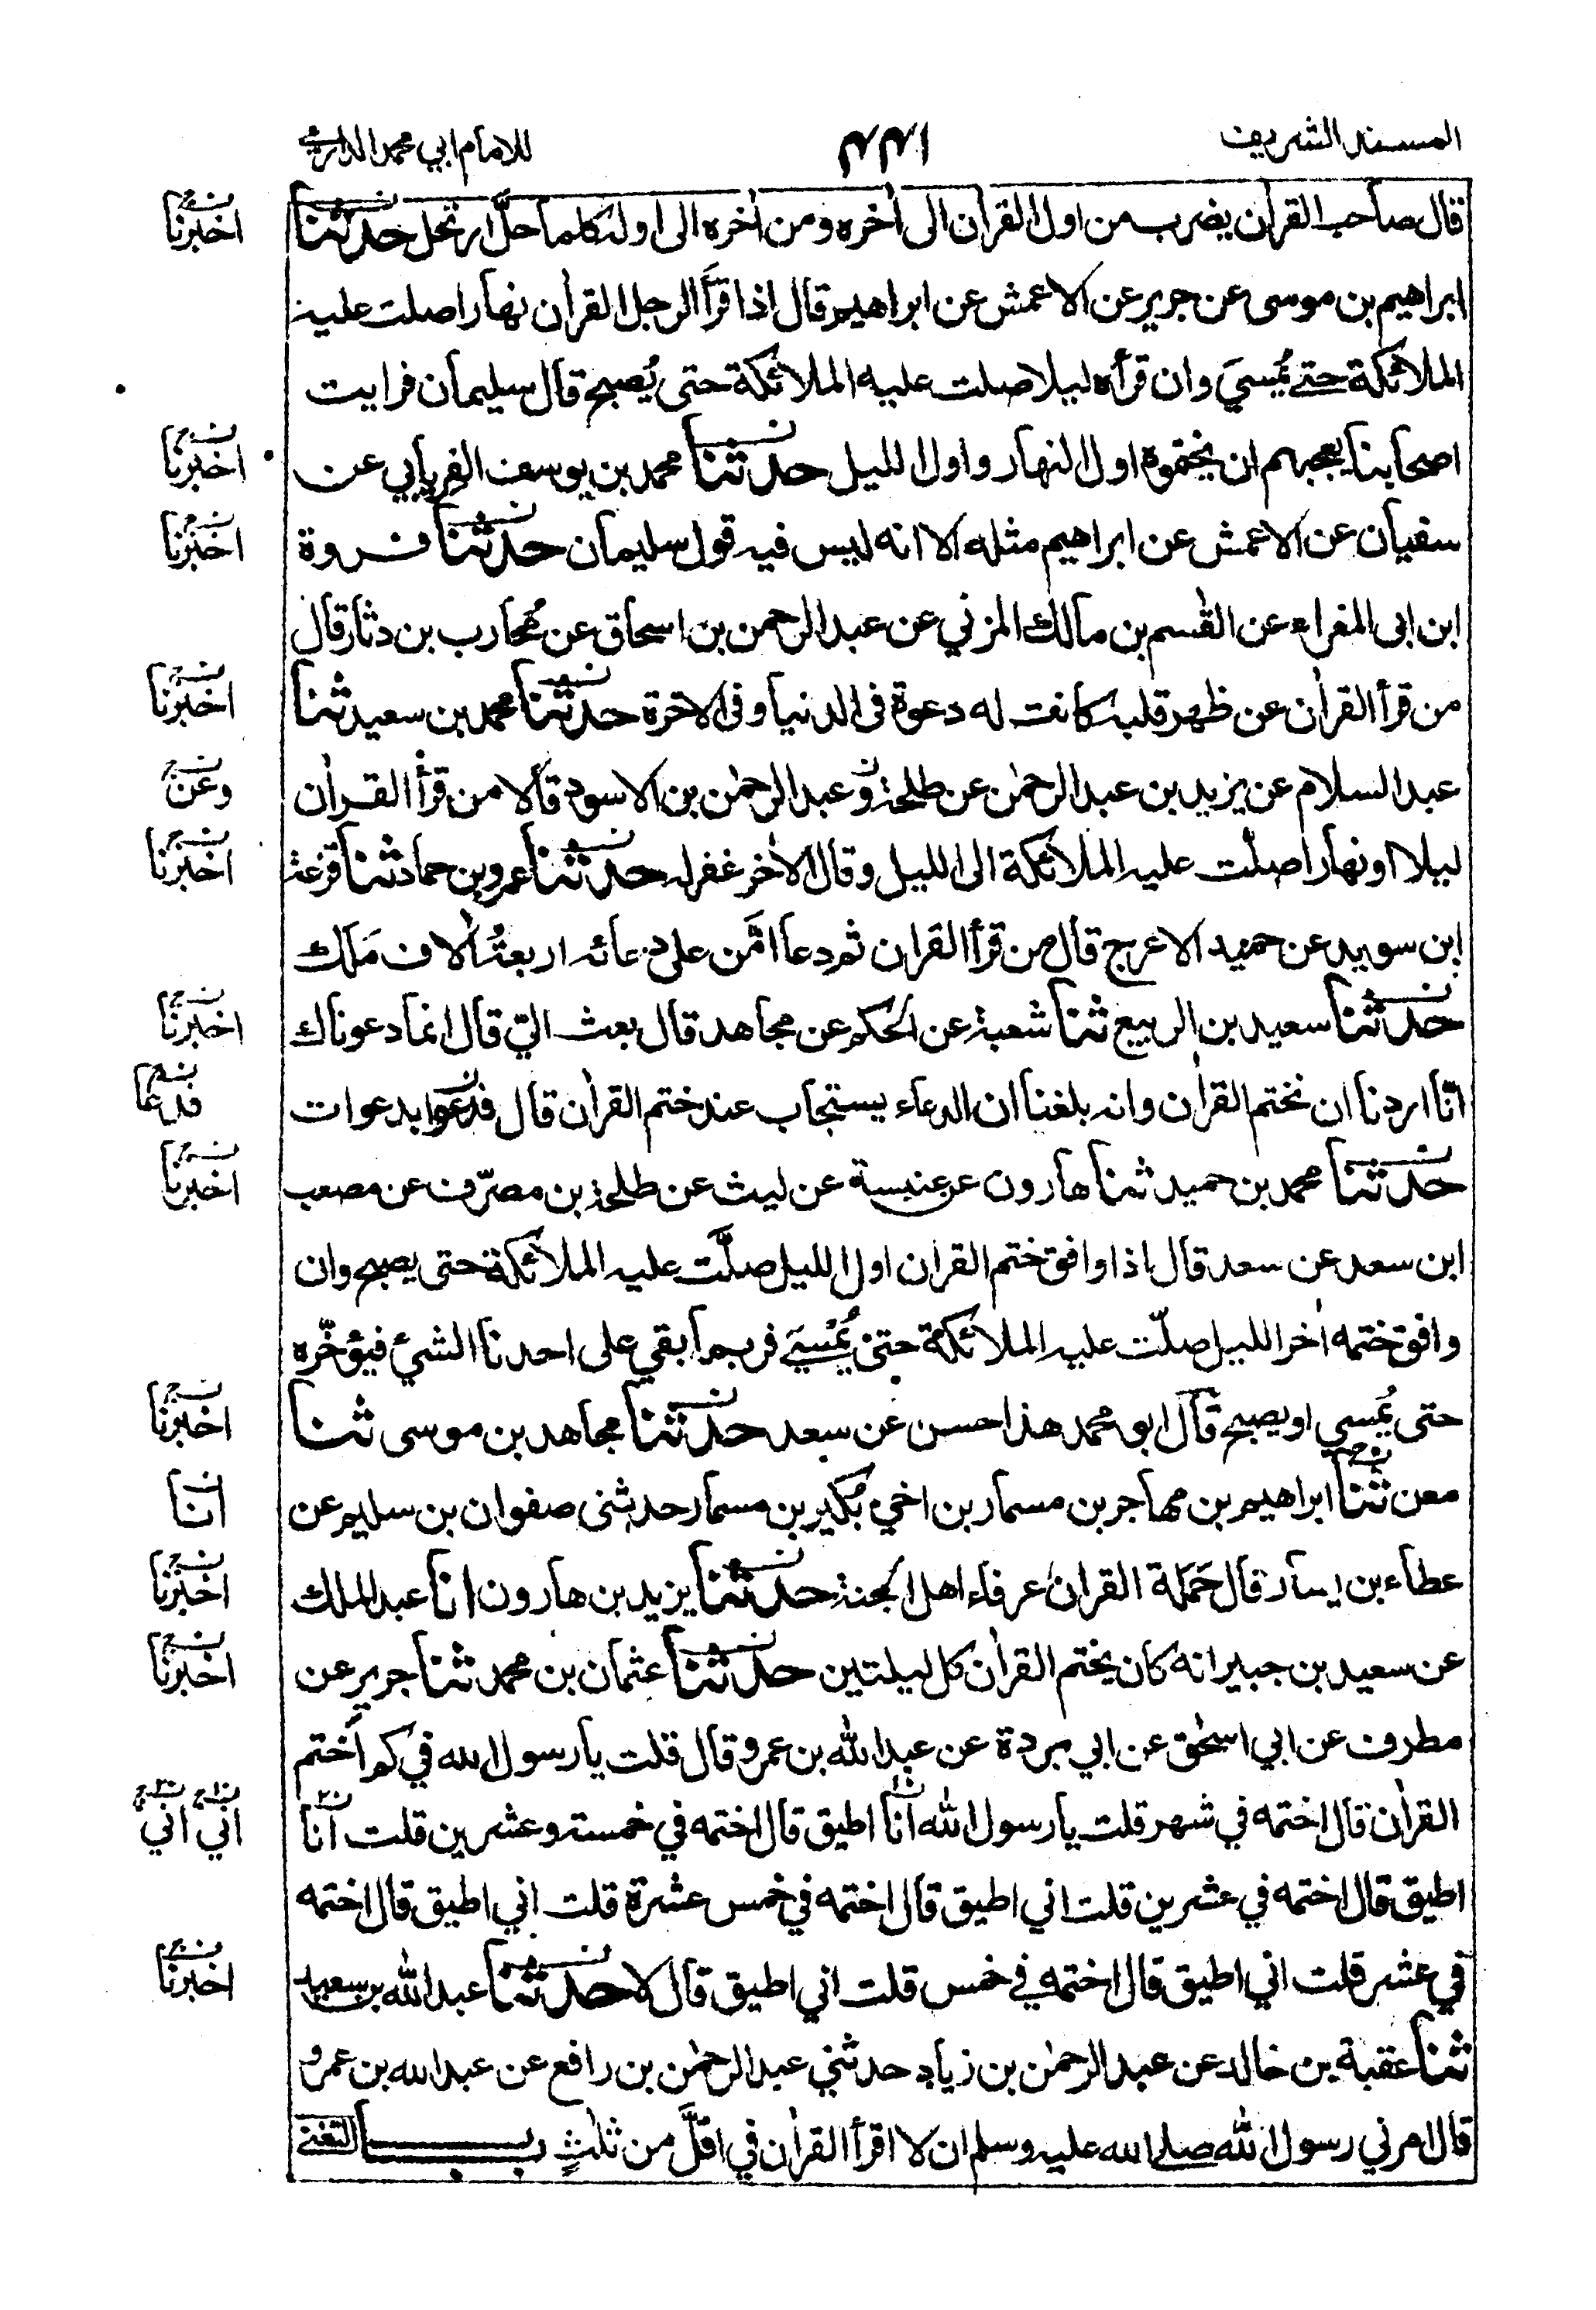 المسند الشريف
للامام ابي محمد الدارمي
قال صاحب القرآن يضرب من اول القرآن الى اخره ومن اخره الى اوله كلما حلّ ارتحل حدثنا
اخبرنا
ابراهيم بن موسى عن جرير عن الاعمش عن ابراهيم قال اذا قرأ الرجل القرآن نهارا صلت عليه
الملائكة حتى يُمسيَ وان قرأه ليلا صلت عليه الملائكة حتى يُصبح قال سليمان فرايت
اصحابنا يعجبهم ان يختموه اول النهار واول الليل حدثنا محمد بن يوسف الفريابي عن
اخبرنا
سفيان عن الاعمش عن ابراهيم مثله الا انه ليس فيه قول سليمان حدثنا فروة
اخبرنا
ابن ابى المغراء عن القٰسم بن مالك المزني عن عبد الرحمن بن اسحاق عن مُحارب بن دثار قال
من قرأ القرآن عن ظهر قلبه كانت له دعوة فى الدنيا وفى الاخرة حدثنا محمد بن سعيد ثنا
اخبرنا
عبد السلام عن يزيد بن عبد الرحمٰن عن طلحة و عبد الرحمٰن بن الاسود قالا من قرأ القرآن
وعن
ليلا او نهارا صلّت عليه الملائكة الى الليل وقال الاخر غفر له حدثنا عمرو بن حماد ثنا قزعة
اخبرنا
ابن سويد عن حميد الاعرج قال من قرأ القرآن ثم دعا امّن على دعائه اربعةُ الاف مَلَك
حدثنا سعيد بن الربيع ثنا شعبة عن الحكم عن مجاهد قال بعث اليّ قال انما دعوناك
اخبرنا
انّا اردنا ان نختم القرآن وانه بلغنا ان الدعاء يستجاب عند ختم القرآن قال فدعوا بدعوات
فدعا
حدثنا محمد بن حميد ثنا هارون عن عنبسة عن ليث عن طلحة بن مصرّف عن مصعب
اخبرنا
ابن سعد عن سعد قال اذا وافق ختم القرآن اول الليل صلّت عليه الملائكة حتى يصبح وان
وافق ختمه اٰخر الليل صلّت عليه الملائكة حتى يُمْسِيَ فربما بقي على احدنا الشيئ فيؤخّره
حتى يُمسي او يصبح قال ابو محمد هذا حسن عن سعد حدثنا مجاهد بن موسى ثنا
اخبرنا
معن ثنا ابراهيم بن مهاجر بن مسمار بن اخي بُكير بن مسمار حدثنى صفوان بن سليم عن
انا
عطاء بن يسار قال حَمَلة القرآن عرفاء اهل الجنة حدثنا يزيد بن هارون انا عبد الملك
اخبرنا
عن سعيد بن جبير انه كان يختم القرآن كل ليلتين حدثنا عثمان بن محمد ثنا جرير عن
اخبرنا
مطرف عن ابي اسحٰق عن ابي بردة عن عبد الله بن عمرو قال قلت يا رسول الله في كم اَختم
القرآن قال اختمه في شهر قلت يا رسول الله انا اطيق قال اختمه في خمسة وعشرين قلت انا
اني اني
اطيق قال اختمه في عشرين قلت اني اطيق قال اختمه في خمس عشرة قلت اني اطيق قال اختمه
في عشر قلت اني اطيق قال اختمه في خمس قلت اني اطيق قال لا حدثنا عبد الله بن سعيد
اخبرنا
ثنا عقبة بن خالد عن عبد الرحمٰن بن زياد حدثني عبد الرحمٰن بن رافع عن عبد الله بن عمرو
قال امرني رسول الله صلى الله عليه وسلم ان لا اقرأ القرآن في اقلَّ من ثلٰثٍ بـــاب التغني